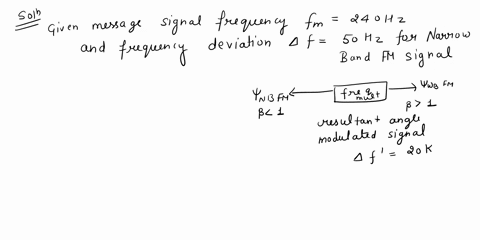 Soln Given message signal frequency fm = 240Hz
and frequency deviation Δf = 50 Hz for Narrow
Band FM signal
ψNBFM ← freq mult → ψWBFM
β < 1 β > 1
resultant angle
modulated signal
Δf' = 20K